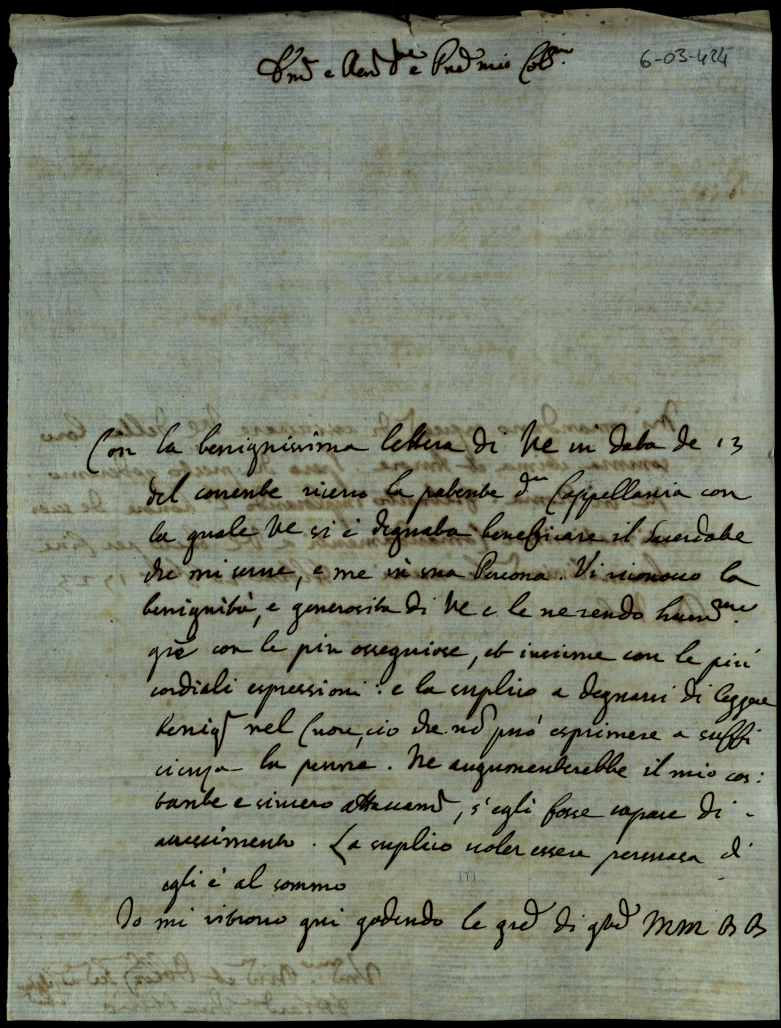 6-03-424
e Rev e Pne mio Col
Con la benignissima lettera di Ve in data de 13
del corrente ricevo la patente Cappellania con
la quale Ve si è degnata beneficare il Sacerdote
che mi serve, e me in sua Persona. Vi riconosco la
benignità, e generosità di Ve e le ne rendo hum.me
gre con le più ossequiose, et insieme con le più
cordiali espressioni: e la suplico a degnarsi di leggere
nel Cuore, ciò che nõ può esprimere a suffi
cienza la penna. Ve augumenterebbe il mio cos:
tante e sincero attaccam, s'egli fosse capace di
accrescimento. La suplico voler essere persuasa
egli è al sommo
Io mi ritrovo qui godendo le di MM BB